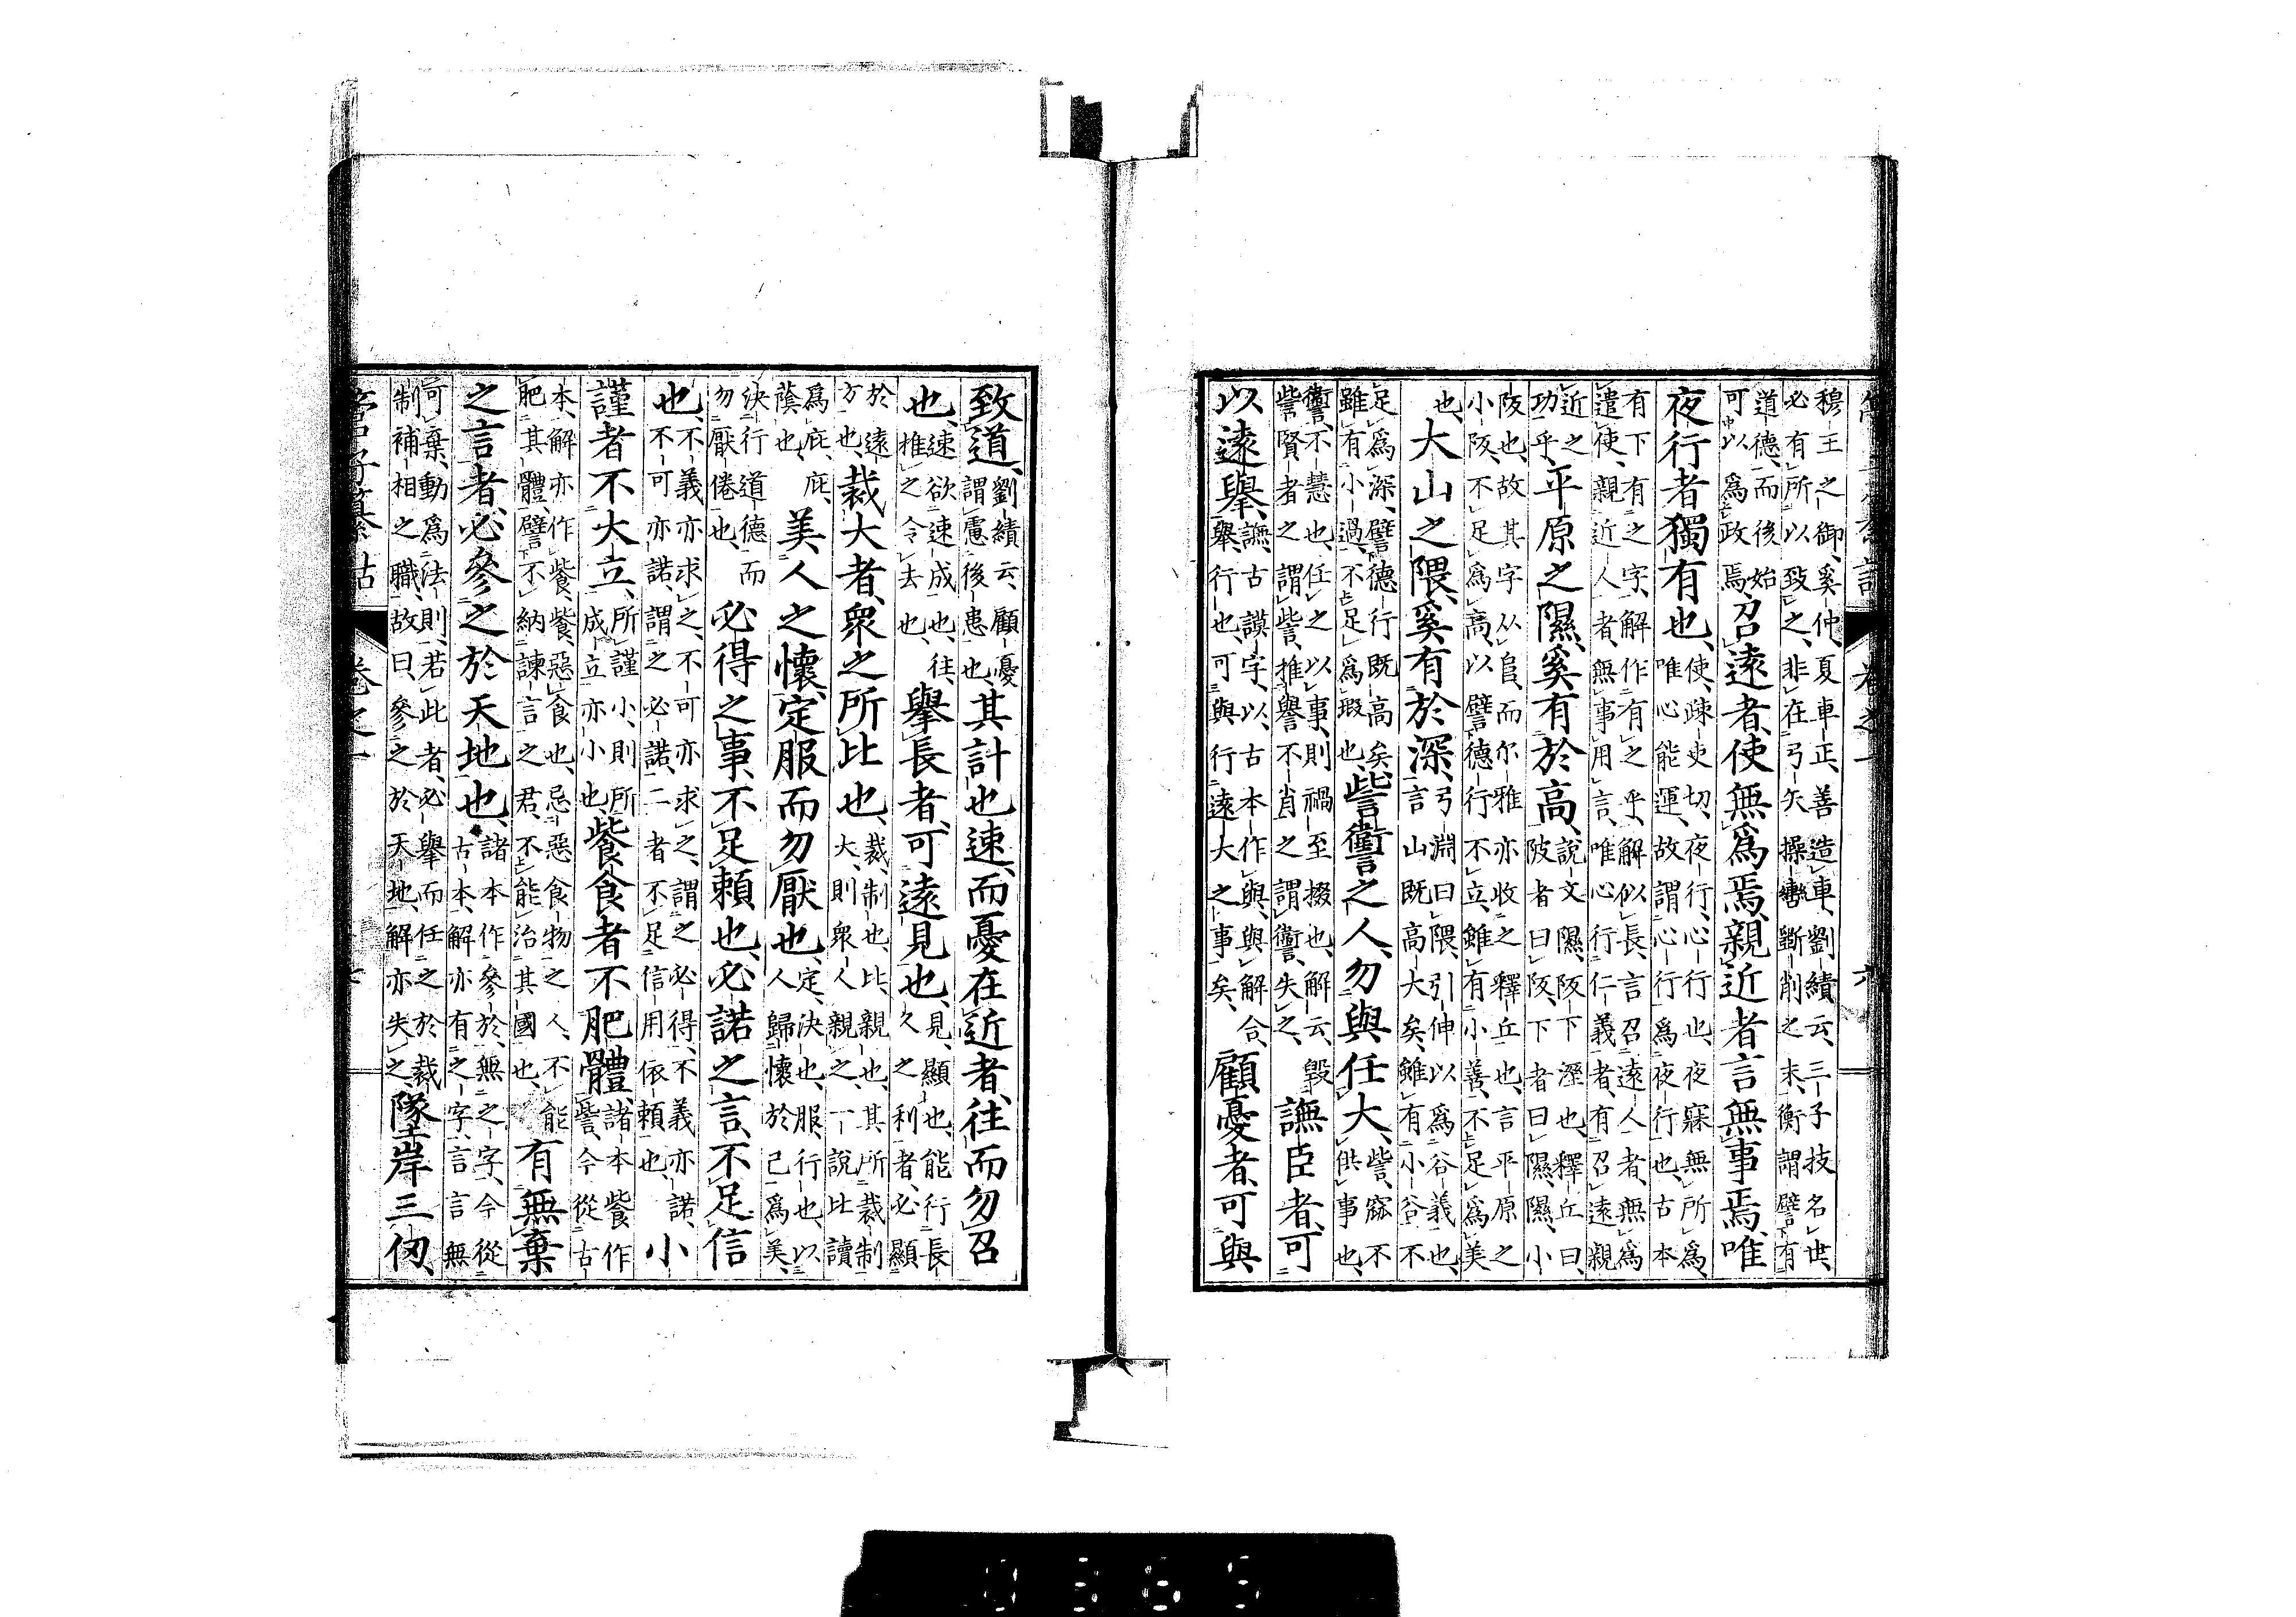 穆王之御、奚仲、夏車正、善造車、劉績云、三子技名世、
必有所以致之、非在弓矢操轡斲削之末、衡謂譬有
道德、而後始可以爲政焉、召遠者、使無爲焉、親近者、言無事焉、唯
夜行者獨有也、使、疎吏切、夜行、心行也、夜寐無所爲、唯心能運、故謂心行爲夜行也、古本
有下有之字、解作有之乎、解似長、言召遠人者、無爲
遣使、親近人者、無事用言、唯心行仁義者、有召遠親
近之功乎、平原之隰、奚有於高、說文、隰、阪下溼也、釋丘曰、陂者曰阪、下者曰隰、隰、小
阪也、故其字从𨸏、而尓雅亦收之釋丘也、言平原之
小阪、不足爲高、以譬德行不立、雖有小善、不足爲美
也、大山之隈、奚有於深、弓淵曰隈、引伸以爲谷義也、言山既高大矣、雖有小谷、不
足爲深、譬德行既高矣、雖有小過、不足爲瑕也、訾讏之人、勿與任大、訾、窳不供事也、
讏、不慧也、任之以事、則禍至掇也、解云、毀訾賢者之謂訾、推譽不肖之謂讏、失之、譕臣者、可
以遠擧、譕、古謨字、以、古本作與、與解合、擧、行也、可與行遠大之事矣、顧憂者、可與
卷之一 六
致道、劉績云、顧憂謂慮後患也、其計也速、而憂在近者、往而勿召
也、速欲速成也、往、推之令去也、擧長者、可遠見也、見、顯也、能行長久之利者、必顯
於遠方也、裁大者、衆之所比也、裁、制也、比、親也、其所裁制大、則衆人親之、一說比讀
爲庇、庇、蔭也、美人之懷、定服而勿厭也、定、決也、服、行也、以人歸懷於己爲美、
決行道德而勿厭倦也、必得之事、不足賴也、必諾之言、不足信
也、不義亦求之、不可亦求之、謂之必得、不義亦諾、不可亦諾、謂之必諾、二者不足信用依賴也、小
謹者不大立、所謹小、則所成立亦小也、飺食者不肥體、諸本飺作、今從古
本、解亦作飺、飺、惡食也、忌惡食物之人、不能肥其體、譬不納諫言之君、不能治其國也、有無棄
之言者、必參之於天地也、諸本作參於、無之字、今從古本、解亦有之字、言言無
可棄、動爲法則、若此者、必擧而任之於裁制補相之職、故曰、參之於天地、解亦失之、墜岸三仞、
管子纂詁 卷之一